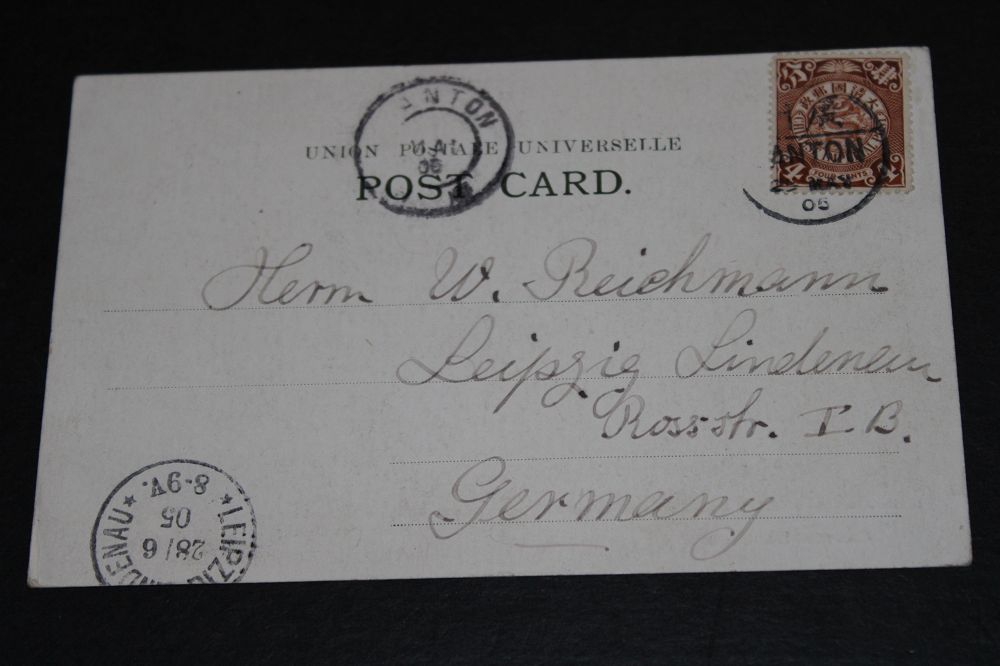 ANTON
MAI
05
UNION POSTALE UNIVERSELLE
POST CARD.
大清國郵政
肆分
4 FOUR CENTS
ANTON
MAY
05
Herrn W. Reichmann
Leipzig Lindenau
Rossstr. I B.
Germany
LEIPZIG LINDENAU
28/6
05
8-9V.